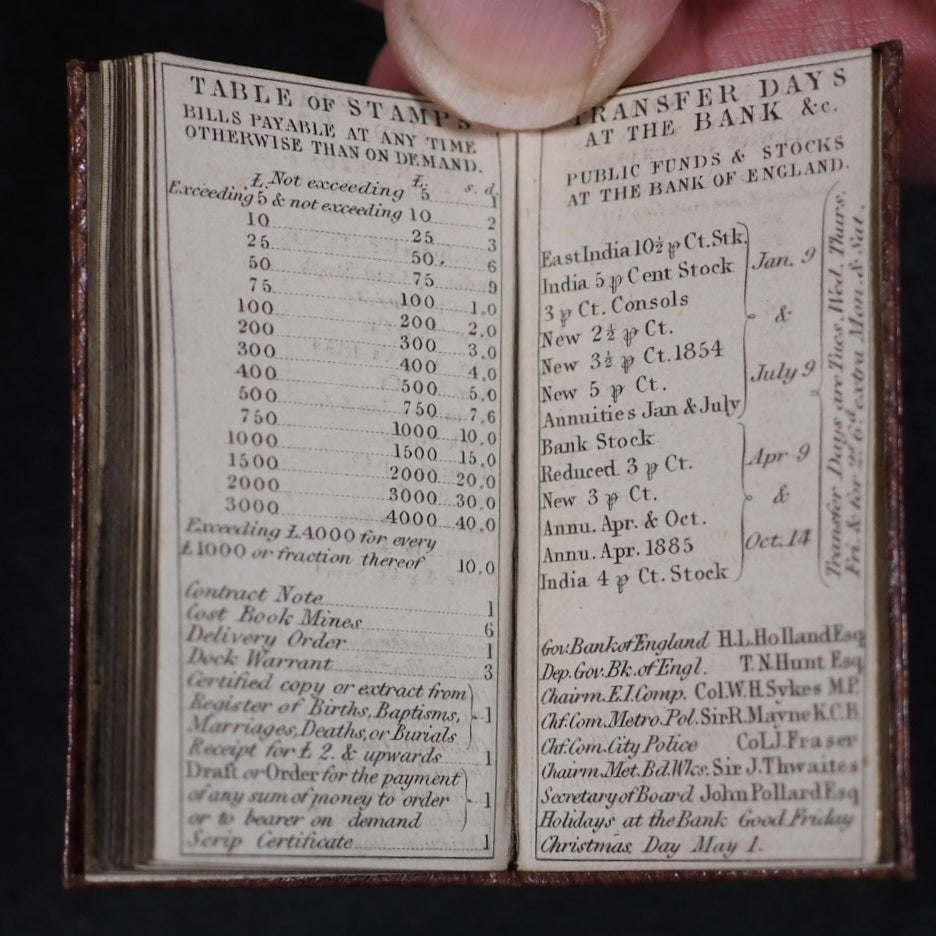 TABLE OF STAMPS
BILLS PAYABLE AT ANY TIME
OTHERWISE THAN ON DEMAND.
£. £. s. d.
Not exceeding 5 1
Exceeding 5 & not exceeding 10 2
10 25 3
25 50 6
50 75 9
75 100 1,0
100 200 2,0
200 300 3,0
300 400 4,0
400 500 5,0
500 750 7,6
750 1000 10,0
1000 1500 15,0
1500 2000 20,0
2000 3000 30,0
3000 4000 40,0
Exceeding £.4000 for every
£1000 or fraction thereof 10,0
Contract Note 1
Cost Book Mines 6
Delivery Order 1
Dock Warrant 3
Certified copy or extract from
Register of Births, Baptisms, 1
Marriages, Deaths, or Burials
Receipt for £ 2. & upwards 1
Draft or Order for the payment
of any sum of money to order 1
or to bearer on demand
Scrip Certificate 1
TRANSFER DAYS
AT THE BANK &c.
PUBLIC FUNDS & STOCKS
AT THE BANK OF ENGLAND.
East India 10½ ⅌ Ct. Stk.
India 5 ⅌ Cent Stock
3 ⅌ Ct. Consols
New 2½ ⅌ Ct.
New 3½ ⅌ Ct. 1854
New 5 ⅌ Ct.
Annuities Jan & July
Jan. 9
&
July 9
Bank Stock
Reduced 3 ⅌ Ct.
New 3 ⅌ Ct.
Annu. Apr. & Oct.
Annu. Apr. 1885
India 4 ⅌ Ct. Stock
Apr 9
&
Oct. 14
Transfer Days are Tues. Wed. Thurs.
Fri. & for 2s. 6d. extra Mon. & Sat.
Gov. Bank of England H.L. Holland Esq
Dep. Gov. Bk. of Engl. T.N. Hunt Esq
Chairm. E.I Comp. Col. W.H. Sykes M.P.
Chf. Com. Metro. Pol. Sir R. Mayne K.C.B.
Chf. Com. City Police Col. J. Fraser
Chairm. Met. Bd. Wks. Sir J. Thwaites
Secretary of Board John Pollard Esq
Holidays at the Bank Good Friday
Christmas Day May 1.